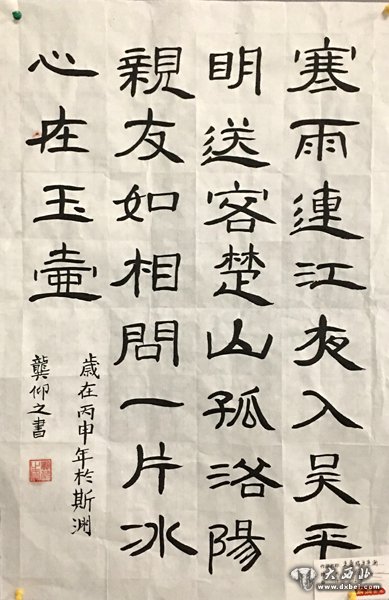 寒雨連江夜入吴平
明送客楚山孤洛陽
親友如相問一片冰
心在玉壺
歲在丙申年於斯渊
龔仰之書
大西北
www.dxbei.com